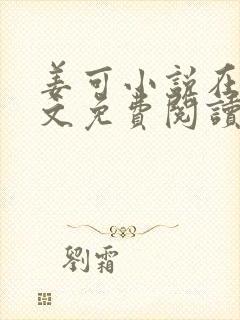 姜可小說在
文免費閱讀
劉霜